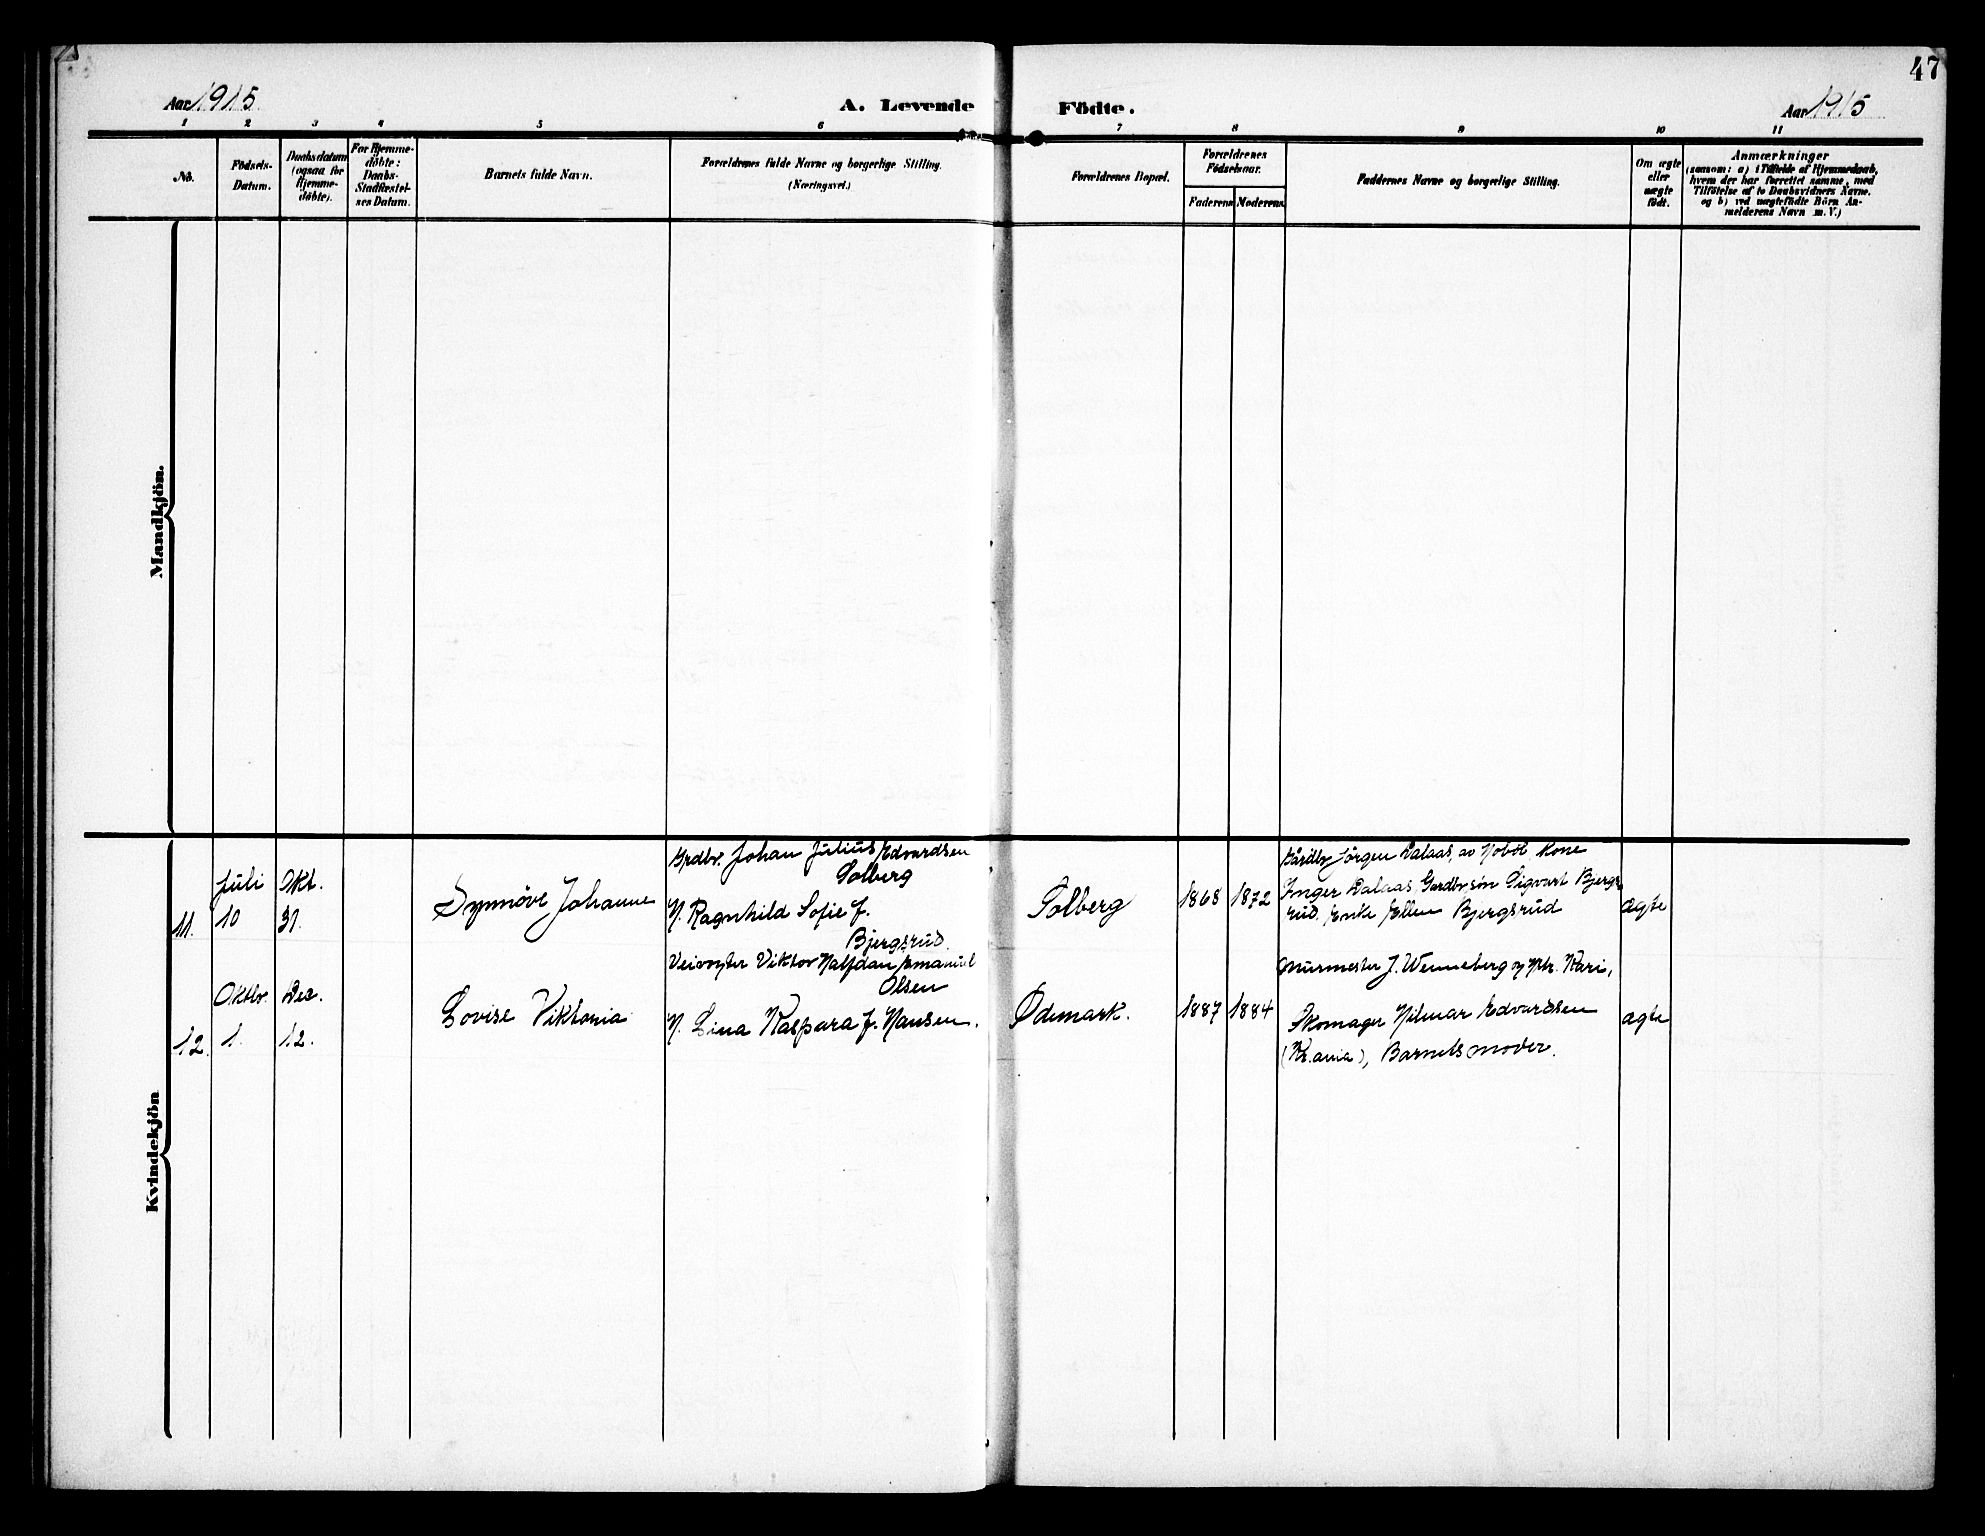 47
Aar 1915
A. Levende
Födte.
Aar 1915
1 2 3 4 5 6 7 8 9 10 11
No.
Födsels-
Datum.
Daabsdatum
(ogsaa for
Hjemme-
döbte).
For Hjemme-
döbte:
Daabs-
Stadfæstel-
ses Datum.
Barnets fulde Navn.
Forældrenes fulde Navne og borgerlige Stilling.
(Næringsvei.)
Forældrenes Bopæl.
Forældrenes
Födselsaar.
Faderens
Moderens
Faddernes Navne og borgerlige Stilling.
Om ægte
eller
uægte
födt.
Anmærkninger
(saasom: a) i Tilfælde af Hjemmedaab,
hvem der har forrettet samme, med
Tilföielse af to Daabsvidners Navne.
og b) ved uægtefödte Börn An-
melderens Navn m. V.)
Mandkjön.
Kvindekjön
11.
Juli
10
Okt.
31.
Synnöve Johanne
Grdbr. Johan Julius Edvardsen
Solberg
H. Ragnhild Sofie f.
Bjergsrud.
Solberg
1868
1872
Gårdbr Jörgen Dalaas, av Hobøl, Kone
Inger Dalaas, Gardbr søn Sigvart Bjergs
rud, Enke Ellen Bjergsrud
ægte
12.
Oktbr.
1.
Dec.
12.
Lovise Viktoria
Veivogter Viktor Halfdan Emanuel
Olsen
H. Lina Kaspara f. Hansen.
Ødemark.
1887
1884
Murmester J. Wenneberg og Htr. Kari,
Skomager Hilmar Edvardsen
(Kr.ania), Barnets moder.
ægte